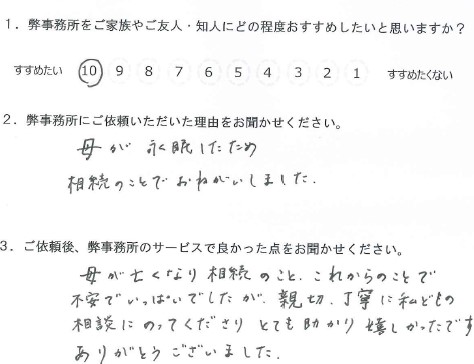 1．弊事務所をご家族やご友人・知人にどの程度おすすめしたいと思いますか？
すすめたい 10 9 8 7 6 5 4 3 2 1 すすめたくない
2．弊事務所にご依頼いただいた理由をお聞かせください。
母が永眠したため
相続のことでおねがいしました．
3．ご依頼後、弊事務所のサービスで良かった点をお聞かせください。
母が亡くなり相続のこと、これからのことで
不安でいっぱいでしたが、親切、丁寧に私どもの
相談にのってくださりとても助かり嬉しかったです
ありがとうございました．